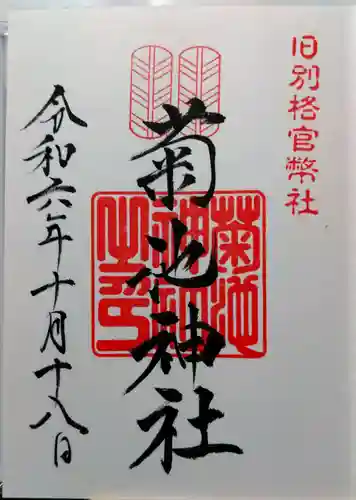 旧別格官幣社
菊池神社
菊池
神社
之印
令和六年十月十八日